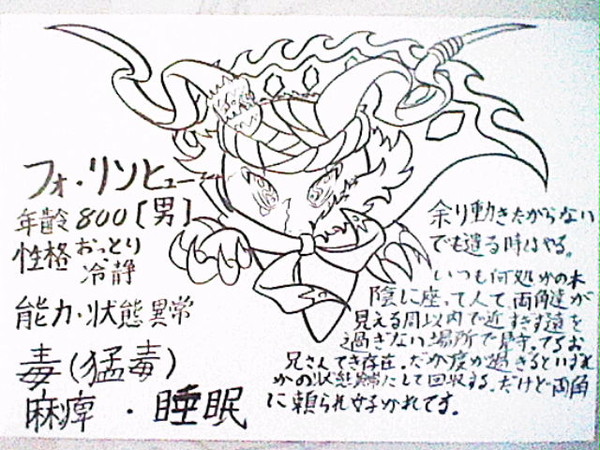 フォ・リンヒュー
年齢 800 [男]
性格 おっとり
冷静
能力・状態異常
毒(猛毒)
麻痺・睡眠
余り動きたがらない
でも遣る時はやる。
いつも何処かの木
陰に座って人て両角達が
見える周以内で近すぎず遠を
過ぎない場所で見守ってるお
兄さんてき存在。だが度が過ぎるといずれ
かの状態異常にして回収する。だけど両角
に頼られ好かれてす。